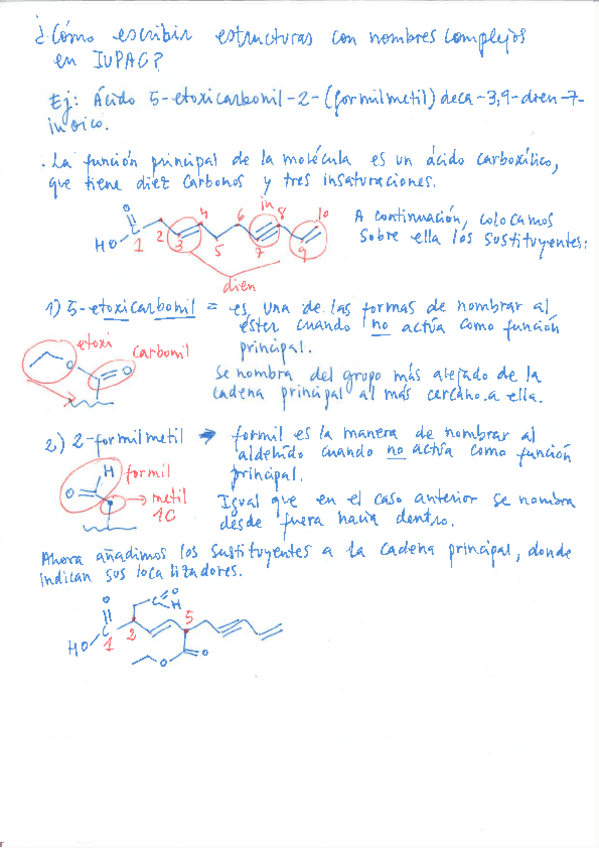 ¿Cómo escribir estructuras con nombres complejos
en IUPAC?
Ej: Ácido 5-etoxicarbonil-2-(formilmetil)deca-3,9-dien-7-
inoico.
. La función principal de la molécula es un ácido carboxílico,
que tiene diez carbonos y tres insaturaciones.
O
HO
C
1 2 3 4 5 6 7 8 9 10
in
dien
A continuación, colocamos
sobre ella los sustituyentes:
1) 5-etoxicarbonil = es una de las formas de nombrar al
éster cuando no actúa como función
principal.
etoxi
carbonil
O
O
Se nombra del grupo más alejado de la
cadena principal al más cercano a ella.
2) 2-formilmetil → formil es la manera de nombrar al
aldehído cuando no actúa como función
principal.
H
O
formil
metil
1C
Igual que en el caso anterior se nombra
desde fuera hacia dentro.
Ahora añadimos los sustituyentes a la cadena principal, donde
indican sus localizadores.
O
C
O
H
HO
C
1
2
5
O
O